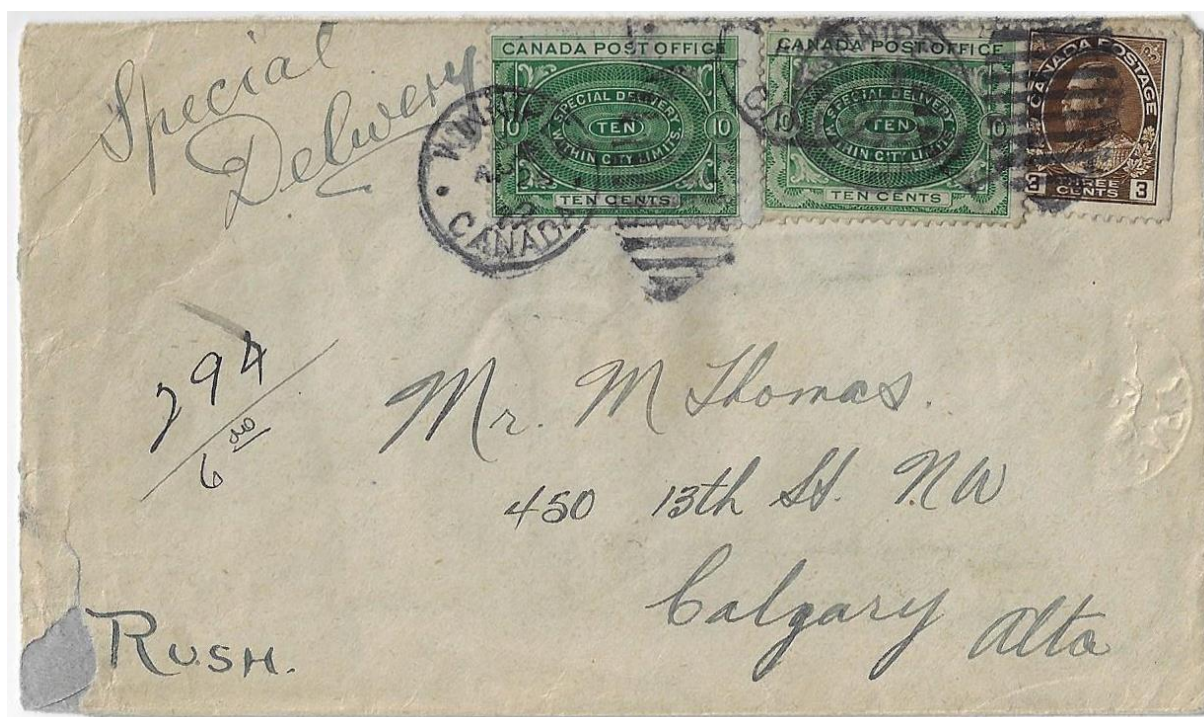 Special
Delivery
CANADA POST OFFICE
SPECIAL DELIVERY
10 TEN 10
WITHIN CITY LIMITS
TEN CENTS
CANADA POST OFFICE
SPECIAL DELIVERY
10 TEN 10
WITHIN CITY LIMITS
TEN CENTS
CANADA POSTAGE
3 THREE 3
CENTS
CANADA
294
6
Mr. M Thomas.
450 13th St. NW
Calgary Alta
RUSH.